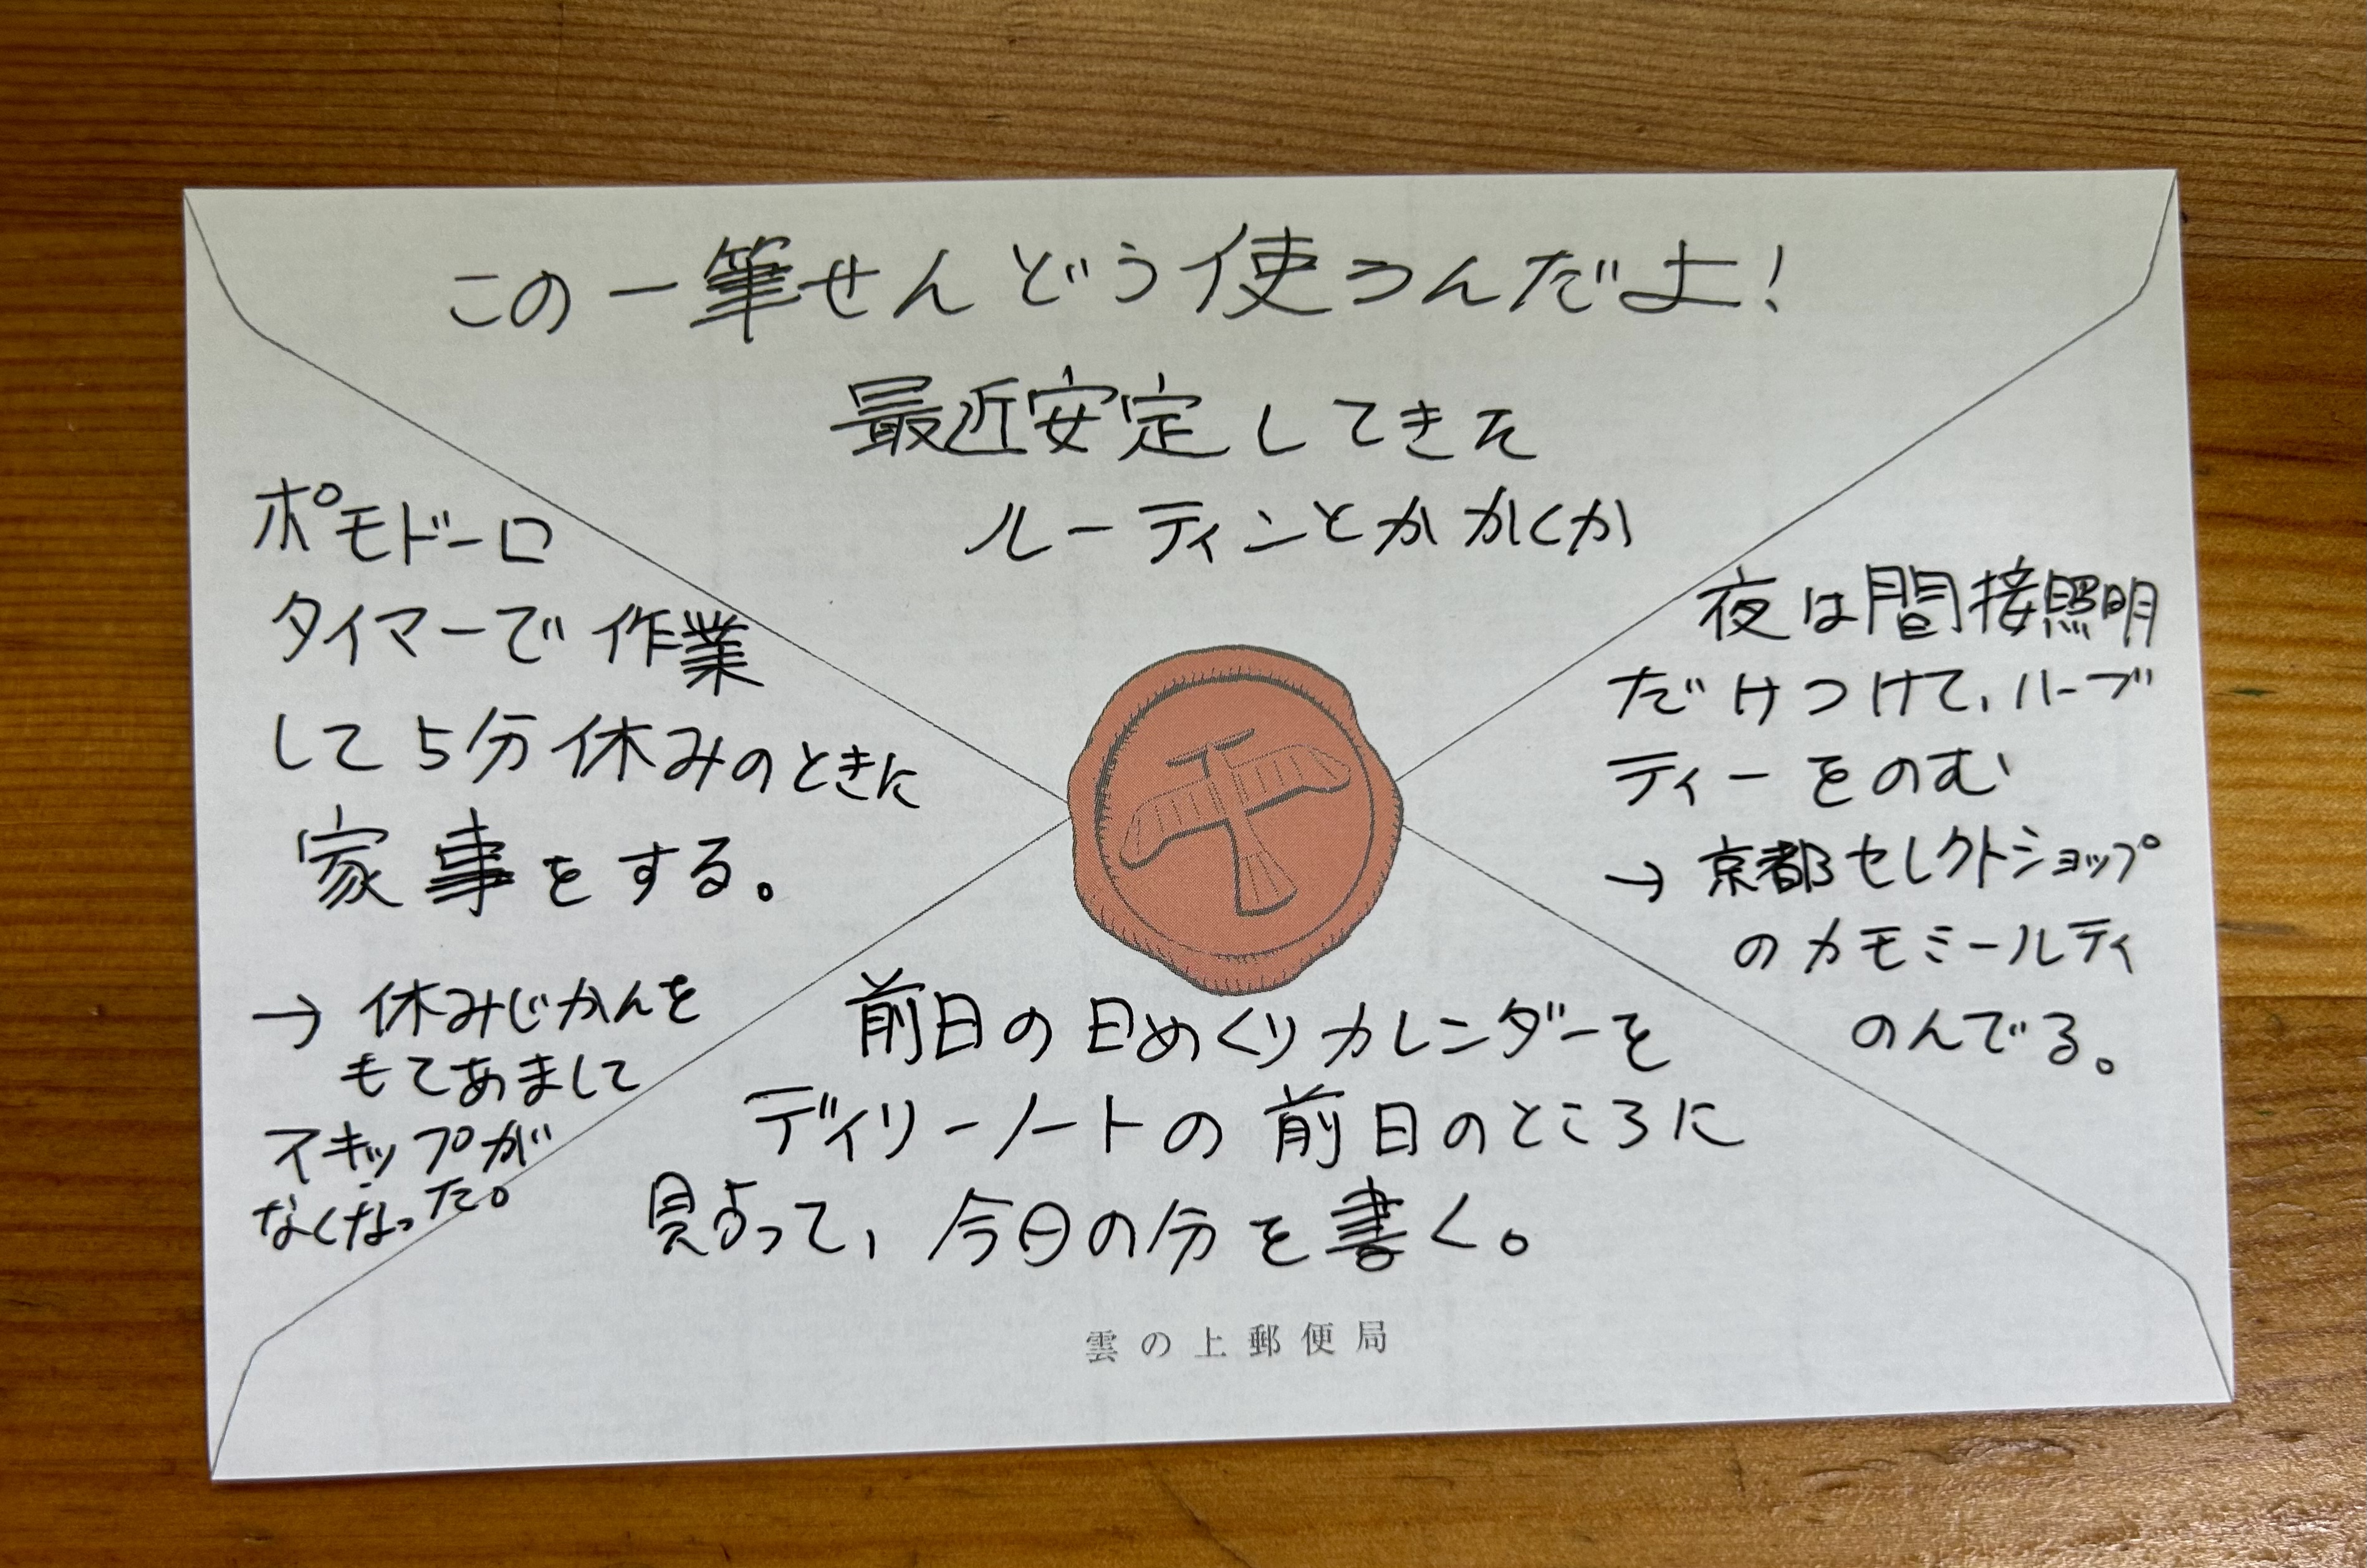 この一筆せんどう使うんだよ!
最近安定してきた
ルーティンとかかくか
ポモドーロ
タイマーで作業
して5分休みのときに
家事をする。
→ 休みじかんを
もてあまして
スキップが
なくなった。
夜は間接照明
だけつけて、ハーブ
ティーをのむ
→ 京都セレクトショップ
のカモミールティ
のんでる。
前日の日めくりカレンダーを
デイリーノートの前日のところに
って、今日の分を書く。
雲の上郵便局